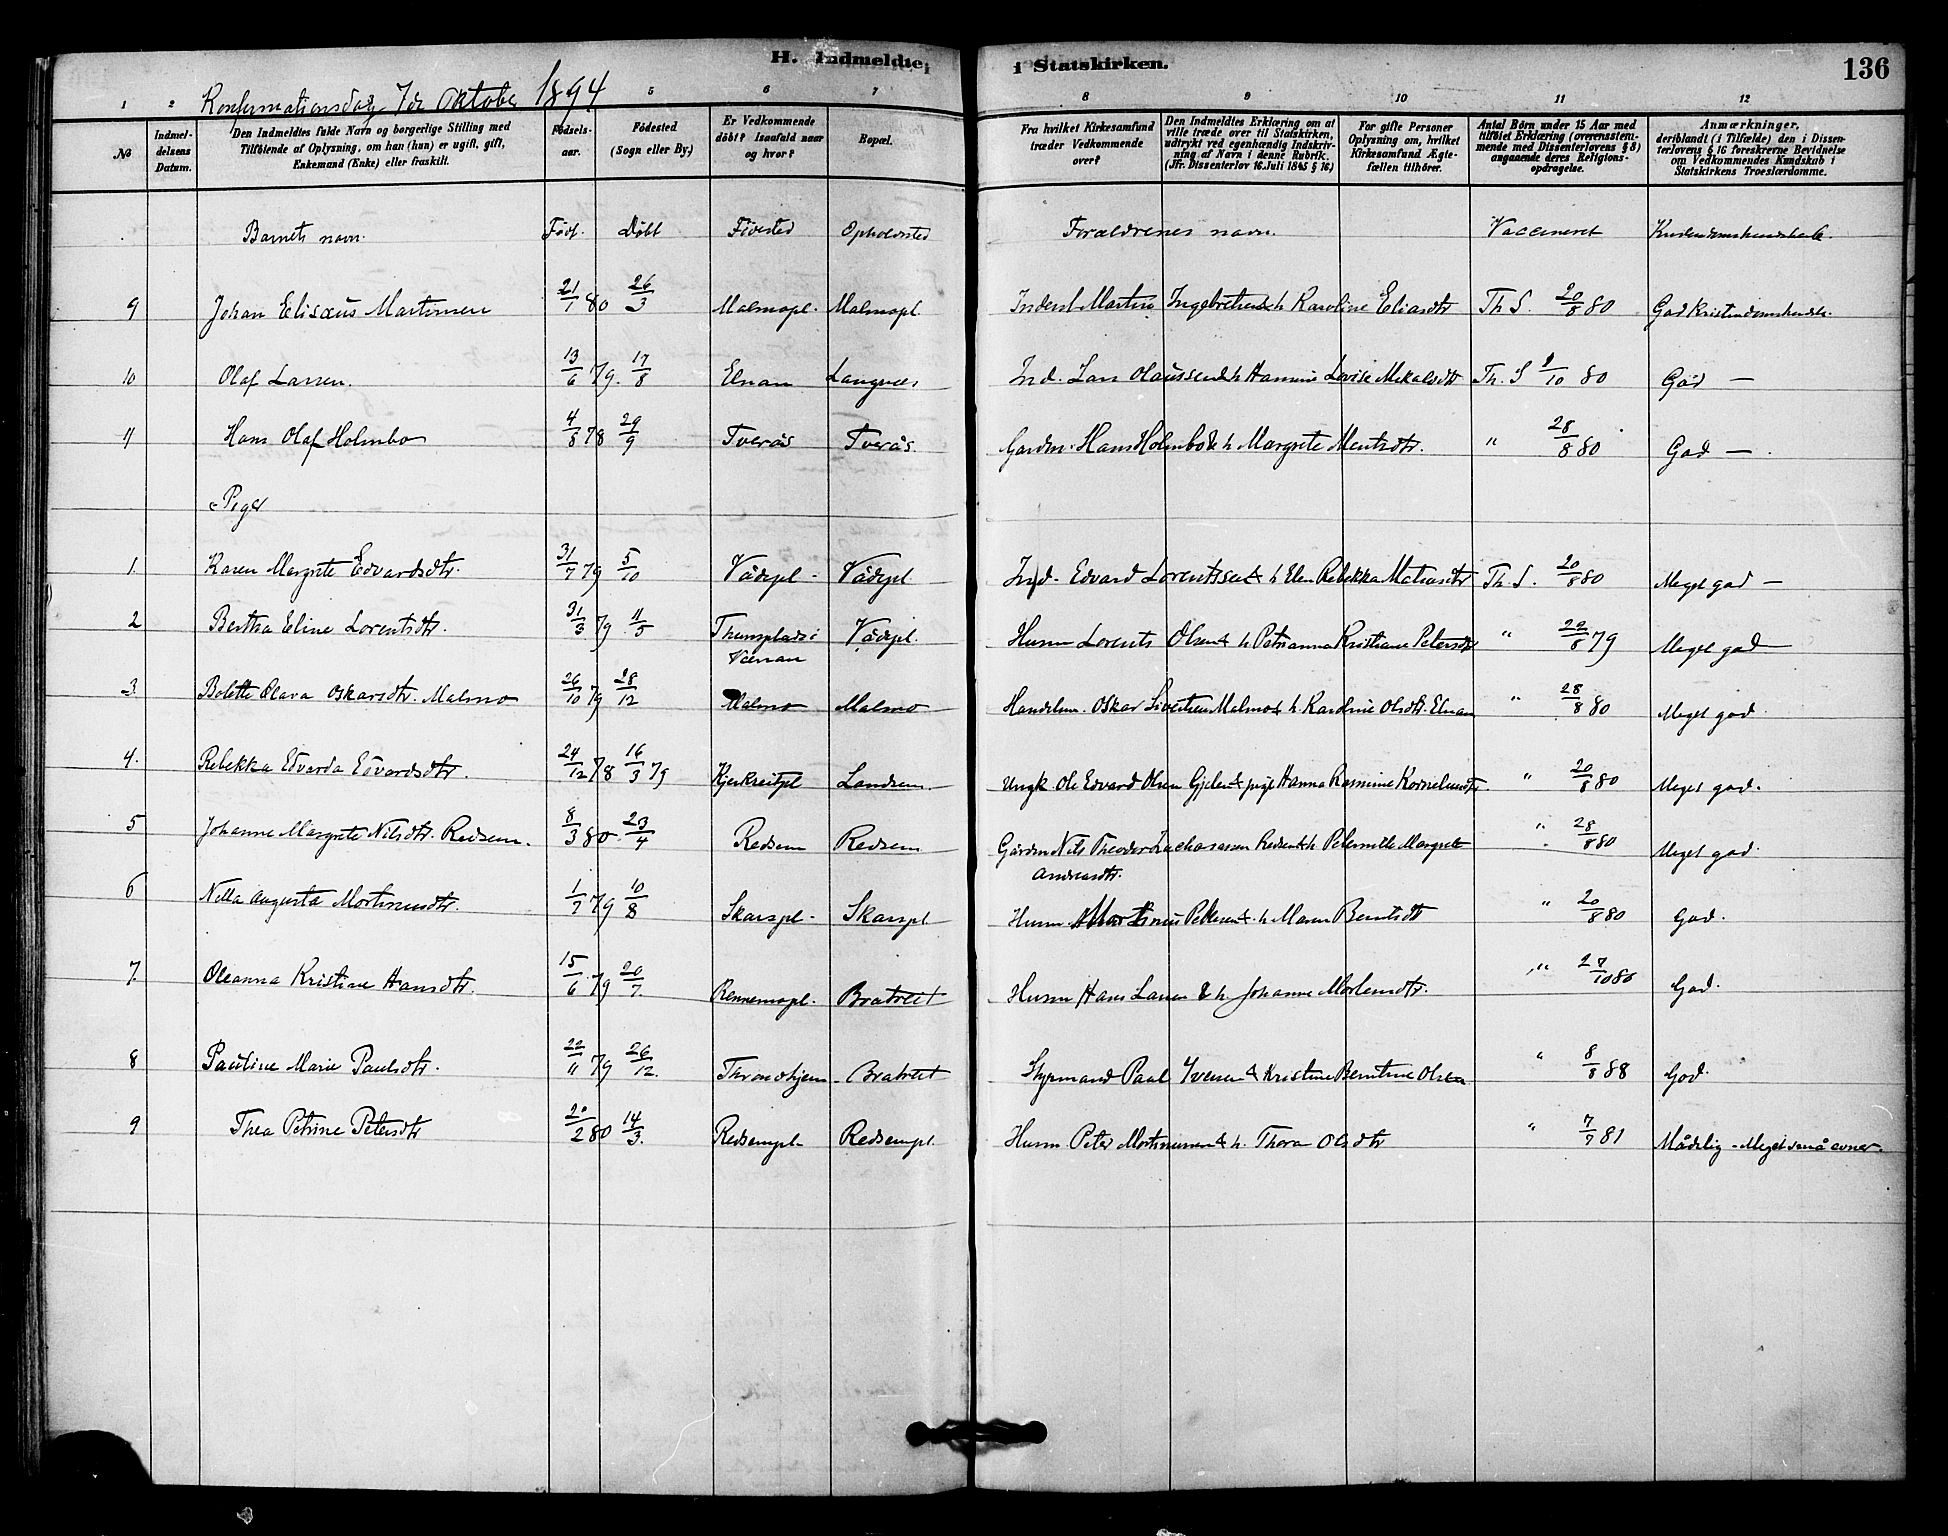 H. Indmeldte i Statskirken.
136
Konfirmationsdag 7de Oktober 1894
1 2 5 6 7 8 9 10 11 12
No
Indmeldelsens Datum.
Den Indmeldtes fulde Navn og borgerlige Stilling med Tilföiende af Oplysning, om han (hun) er ugift, gift, Enkemand (Enke) eller fraskilt.
Födselsaar.
Födested (Sogn eller By.)
Er Vedkommende döbt? Isaafald naar og hvor?
Bopæl.
Fra hvilket Kirkesamfund træder Vedkommende over?
Den Indmeldtes Erklæring om at ville træde over til Statskirken, udtrykt ved egenhændig Indskrivning af Navn i denne Rubrik. (Jfr. Dissenterlov 16. Juli 1845 § 16)
For gifte Personer Oplysning om, hvilket Kirkesamfund Ægtefællen tilhörer.
Antal Börn under 15 Aar med tilföiet Erklæring (overensstemmende med Dissenterlovens § 8) angaaende deres Religionsopdragelse.
Anmærkninger, deriblandt (i Tilfælde) den i Dissenterlovens § 16 foreskrevne Bevidnelse om Vedkommendes Kundskab i Statskirkens Troeslærdomme.
Barnets navn. Født. Döbt Födested Opholdsted Forældrenes navn. Vaccineret
9 Johan Elisæus Martinsen 21/1 80 26/3 Malmopl. Malmopl. Inderst Martin Ingebretsen & h Karoline Eliasdtr Th S. 20/8 80 God Kristendomskundsk.
10 Olaf Larsen. 13/6 79. 17/8 Elnan Langnes Ind. Lars Olaussen & h Lovise Mikalsdtr Th. S /10 80 God —
11 Hans Olaf Holmbo 4/8 78 29/9 Tverås Tverås. Gardm. Hans Holmbo & h Margrete Mentsdtr. " 28/8 80 God — .
Piger
1 Karen Margrete Edvardsdtr. 31/7 79 5/10 Vådepl - Vådepl Ind. Edvard Lorentssen & h Elen Rebekka Th. S. 20/8 80 Meget god —
2 Bertha Eline Lorentsdtr. 31/3 79 11/5 i Værran Vådepl. Husm Lorents Olsen & h Petrianna Kristiane Petersdtr " 22/8 79 Meget god —
3 Bolette Olava Oskarsdtr. Malmo 26/10 79 28/12 Malmo Malmo Handelsm. Oskar Sivertsen Malmo & h Karoline Olsdtr. Elnan " 28/8 80 Meget god
4. Rebekka Edvarda Edvardsdtr. 24/12 78 16/3 79 Landsem. Ungk. Ole Edvard Olsen & pige Hanna Rasmine Kornelius dtr " 20/8 80 Meget god.
5 Johanne Margrete Nilsdtr. Redsem. 8/3 80 23/4 Redsem Redsem Gårdm Nils Theodor Zachariassen Redsem & h Peternille Margrete Andreasdtr. " 28/8 80 Meget god
6 Nilla Augusta Mortinusdtr. 1/7 79 10/8 Skarspl - Skarspl Husm Mortinus Pettersen & h Maren Berntsdtr " 20/8 80 God.
7. Oleanna Kristine Hansdtr. 15/6 79 20/7. Rennemspl. Bratreit Husm Hans Larsen & h. Johanne Mortensdtr. " 27/10 80 God.
8 Pauline Marie Paulsdtr. 22/11 79 26/12. Throndhjem Bratreit Styrmand Paul Iversen & Kristine Berntine Olsen " 8/8 88 God.
9 Thea Petrine Petersdtr 20/2 80 14/3. Redsempl. Redsempl Husm Peter Mortinussen & h. Thora Olsdtr " 7/7 81 Mådelig - Meget små evner.